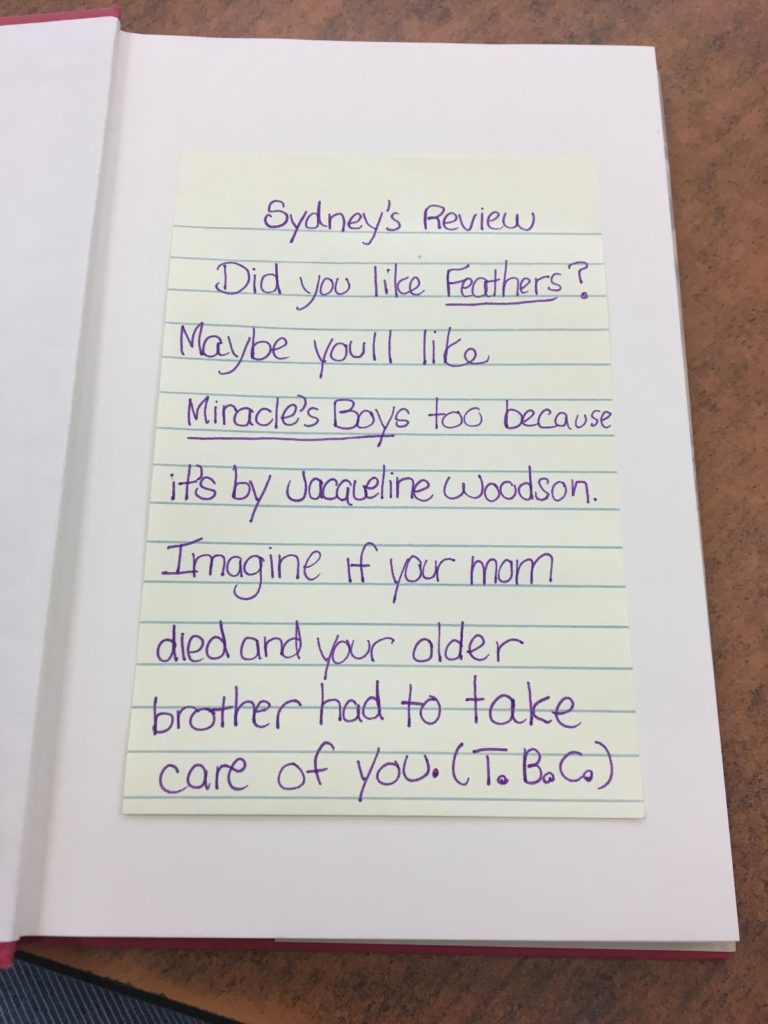 Sydney's Review
Did you like Feathers?
Maybe youll like
Miracle's Boys too because
it's by Jacqueline Woodson.
Imagine if your mom
died and your older
brother had to take
care of you. (T.B.C.)